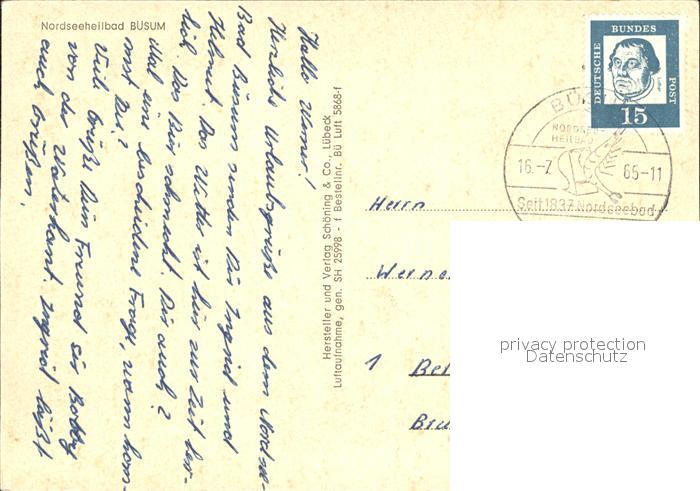 Nordseeheilbad BÜSUM
Hallo Werner!
Herzliche Urlaubsgrüße aus dem Nordsee-
Bad Büsum senden Dir Ingrid und
Helmut. Das Wetter ist hier zur Zeit herr-
lich. Das Bier schmeckt. Dir auch?
Mal eine bescheidene Frage, wann kom-
mst Du?
Viele Grüße Dein Freund
von der Waterkant. Ingrid läßt
auch grüßen.
Hersteller und Verlag Schöning & Co., Lübeck
Luftaufnahme, gen. SH 25998 - f Bestellnr. Bü Luft 5868-f
DEUTSCHE
BUNDES
POST
15
BÜ
NORDSEE-
HEILBAD
16.-7
65-11
Seit 1837 Nordseebad
Herrn
Werne
1 Be
privacy protection
Datenschutz